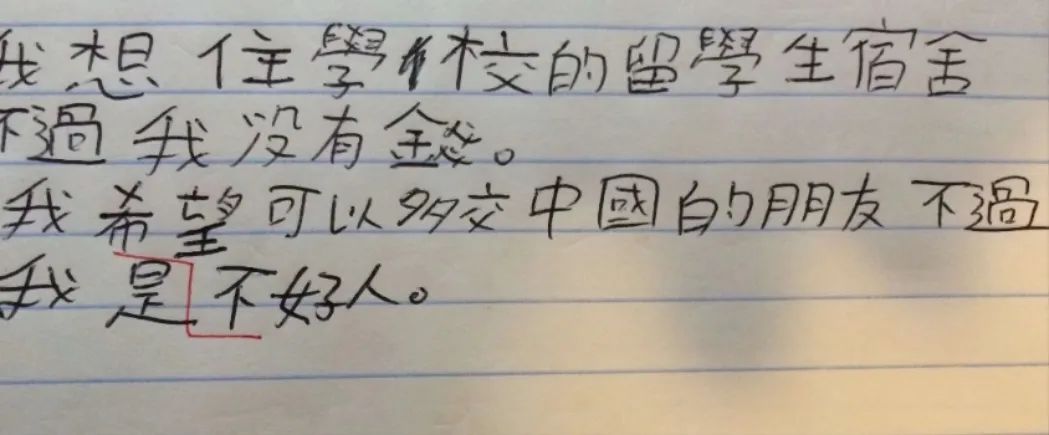 我想住學校的留學生宿舍
不過我没有錢。
我希望可以多交中國的朋友不過
我是不好人。